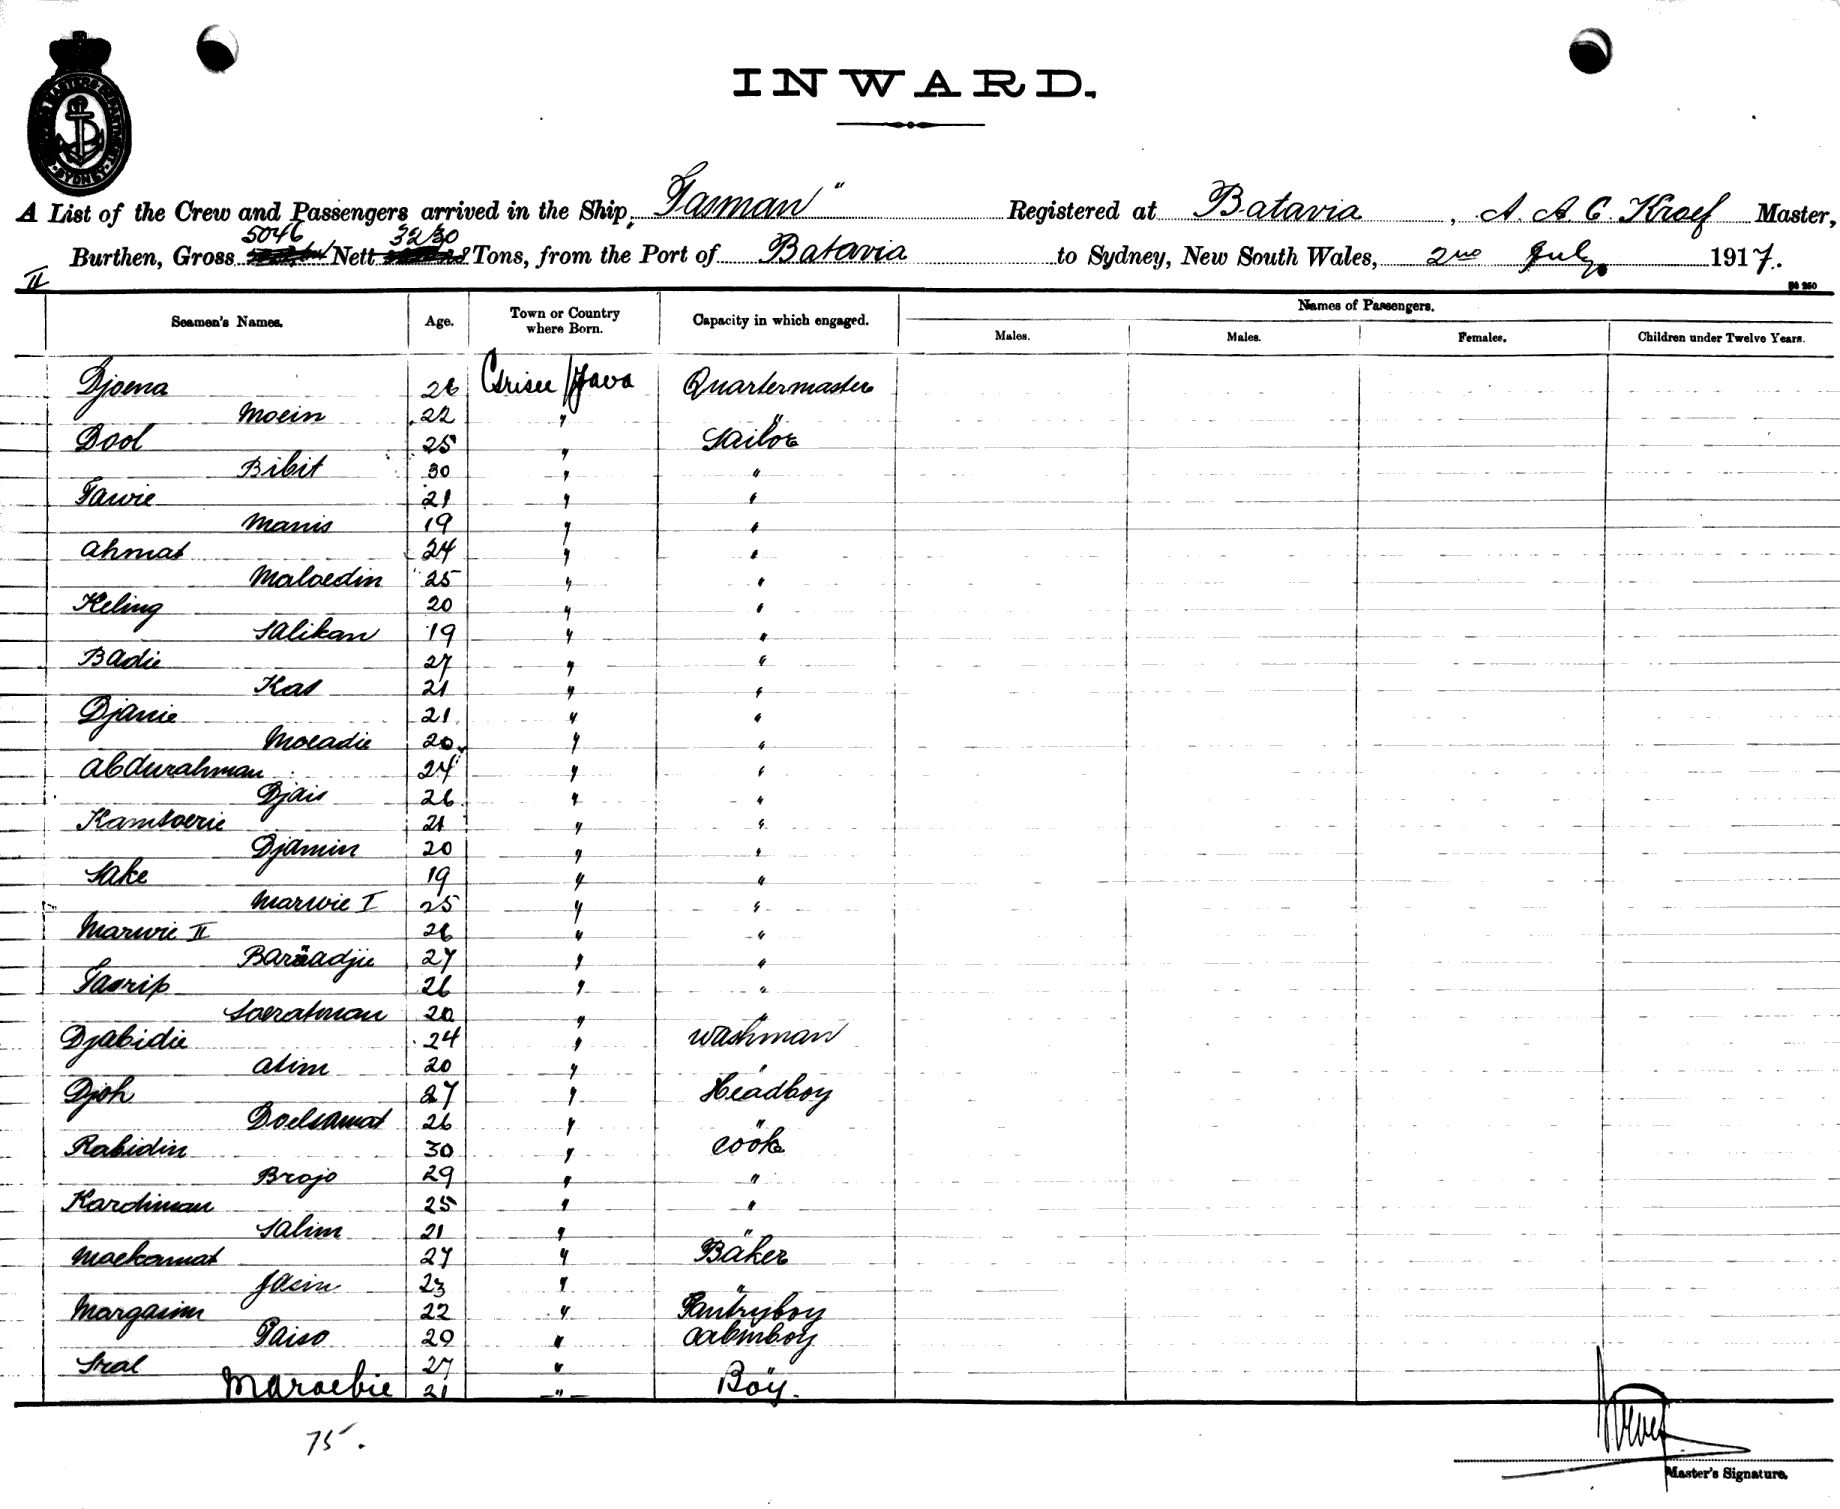 INWARD.
A List of the Crew and Passengers arrived in the Ship, Tasman" Registered at Batavia, A. A. C. Kroef Master,
5046 3230
Burthen, Gross Nett Tons, from the Port of Batavia to Sydney, New South Wales, 2nd July 1917.
II
Names of Passengers.
Seamen's Names. Age. Town or Country where Born. Capacity in which engaged. Males. Males. Females. Children under Twelve Years.
Djoena 26 Grisee / Java Quartermaster
Moein 22 " "
Dool 25 " Sailor
Bibit 30 " "
Tawie 21 " "
Manis 19 " "
Ahmat 24 " "
Maloedin 25 " "
Keling 20 " "
Salikan 19 " "
Badie 27 " "
Kas 21 " "
Djanie 21 " "
Moeadie 20 " "
Abdurahman 24 " "
Djais 26 " "
Kamtoerie 21 " "
Djamin 20 " "
Sake 19 " "
Marwie I 25 " "
Marwie II 26 " "
27 " "
Tasrip 26 " "
Soeratman 20 " "
Djabidie 24 " Washman
Atim 20 " "
Djoh 27 " Headboy
Doelsamat 26 " "
Rabidin 30 " Cook
Brojo 29 " "
Kardiman 25 " "
Salim 21 " "
Moekamat 27 " Baker
Jasin 23 " "
Margasim 22 " Pantryboy
Paiso 20 " Cabinboy
Sral 27 " "
Maroebie 21 " Boy.
75.
Kroef
Master's Signature.